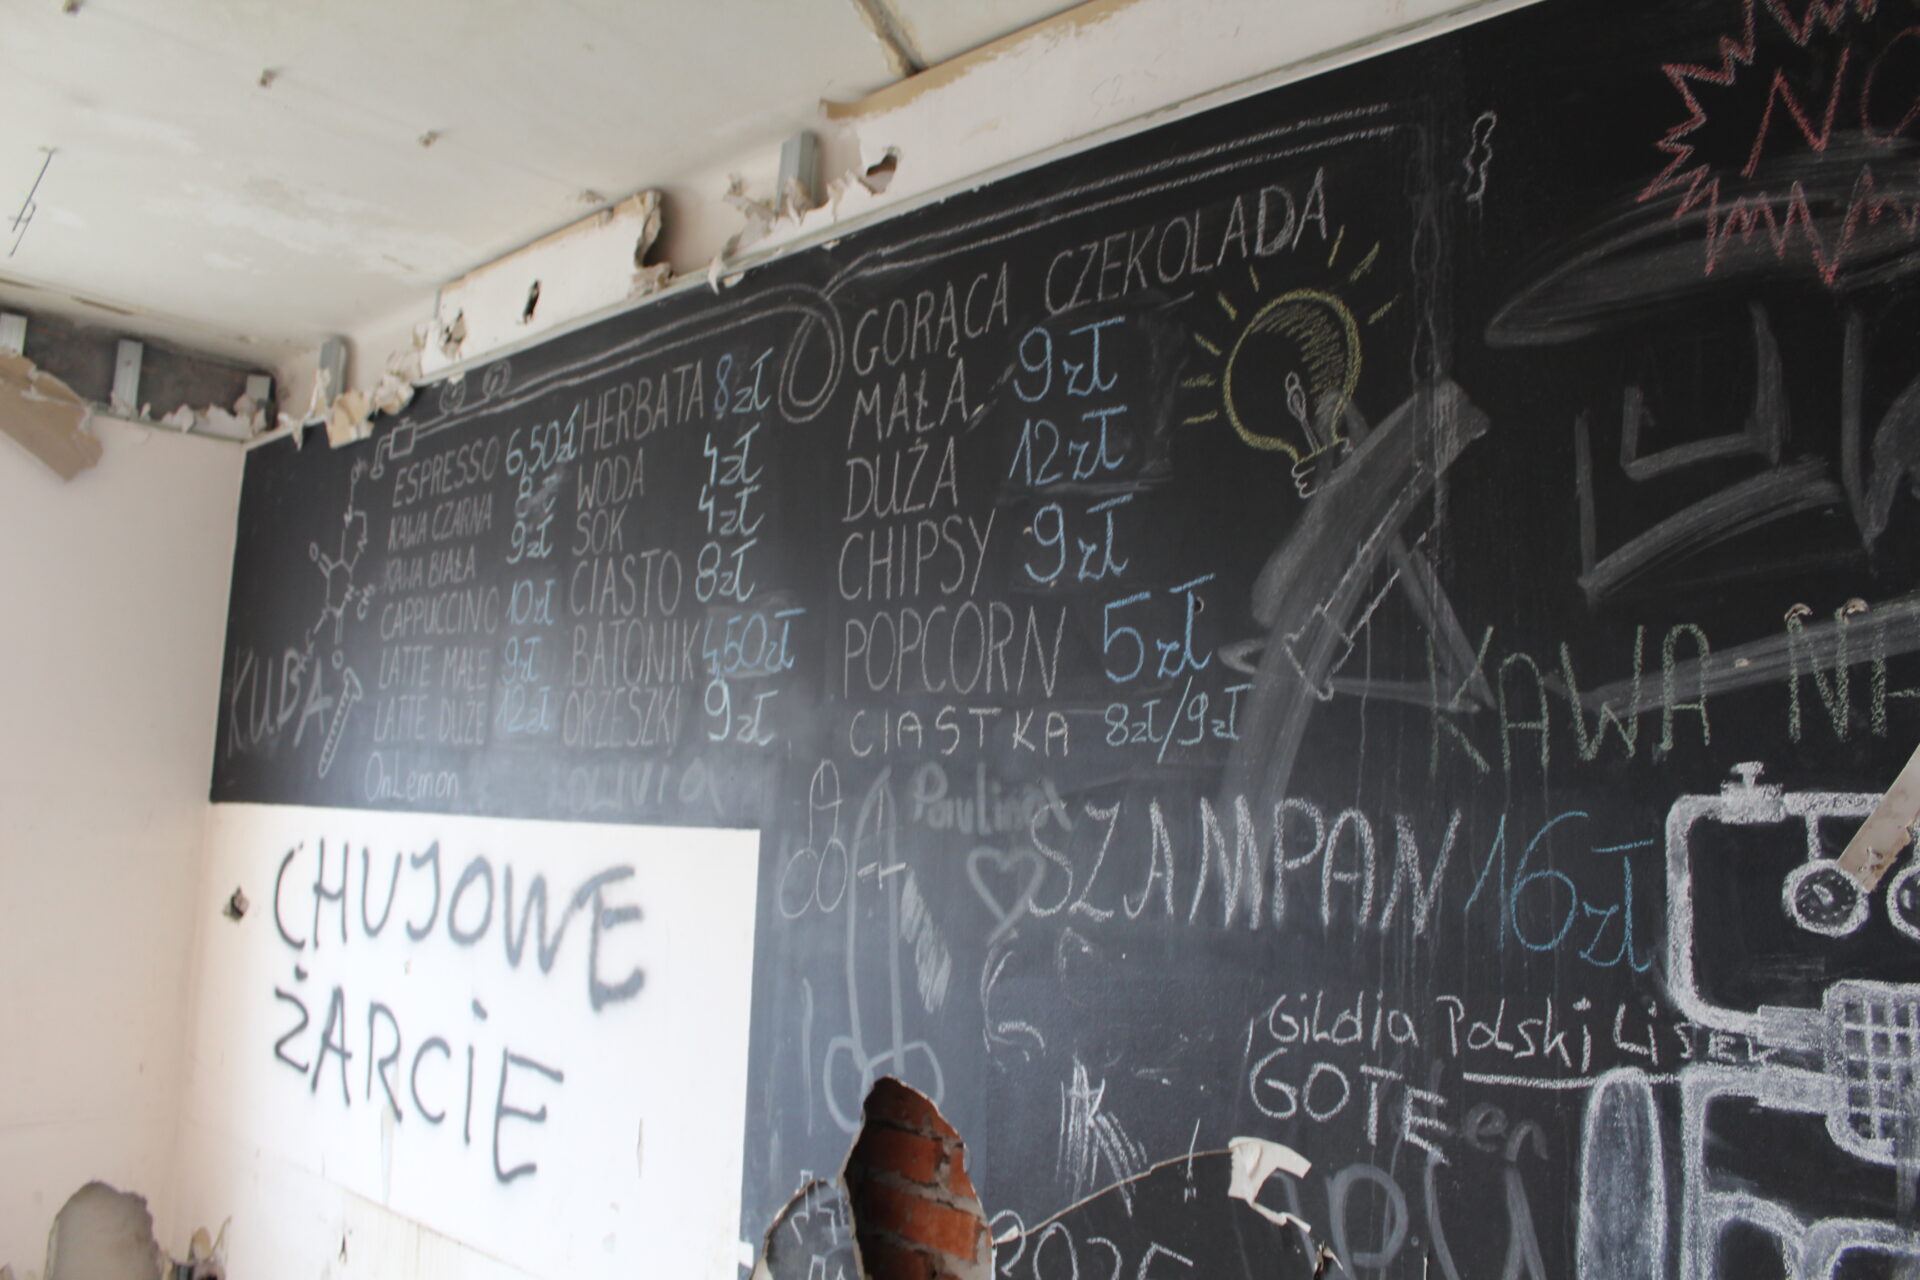 NO
GORĄCA CZEKOLADA
MAŁA 9zł
DUŻA 12zł
CHIPSY 9zł
POPCORN 5zł
CIASTKA 8zł/9zł
ESPRESSO 6,50zł
KAWA CZARNA 8zł
KAWA BIAŁA 9zł
CAPPUCCINO 10zł
LATTE MAŁE 9zł
LATTE DUŻE 12zł
HERBATA 8zł
WODA 4zł
SOK 4zł
CIASTO 8zł
BATONIK 4,50zł
ORZESZKI 9zł
CH₃
KUBA
OnLemon
OLIVIA
Paulina
KAWA NI
SZAMPAN 16zł
CHUJOWE
ŻARCIE
Gildia Polski Lisek
GOTE
2025